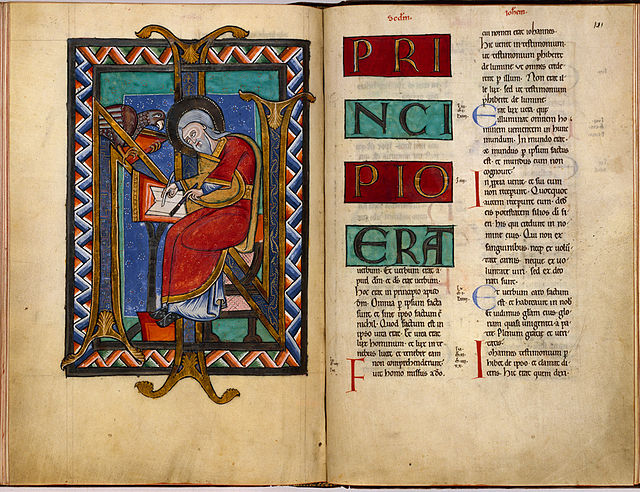 IN
Secdm
Iohem.
PRI
NCI
PIO
ERA
uerbum. Et uerbum erat a
pud dm. et ds erat uerbum.
Hoc erat in principio apud
dm. Omnia p ipsum facta
sunt. et sine ipso factum e
nichil. Quod factum est in
ipso uita erat. Et uita erat
lux hominum. et lux in te
nebris lucet. et tenebre eam
non comprehenderunt.
Fuit homo missus a do.
cui nomen erat iohannes.
Hic uenit in testimonium.
ut testimonium phiberet
de lumine ut omnes crede
rent p illum. Non erat il
le lux. sed ut testimonium
phiberet de lumine.
Erat lux uera. que
illuminat omnem ho
minem uenientem in hunc
mundum. In mundo erat.
et mundus p ipsum factus
est. et mundus eum non
cognouit.
In ppria uenit. et sui eum
non receperunt. Quotquot
autem receperunt eum. ded
eis potestatem filios di fi
eri. his qui credunt in no
mine eius. Qui non ex
sanguinibus. neqz ex uolu
tate carnis. neque ex uo
luntate uiri. sed ex deo
nati sunt.
Et uerbum caro factum
est. et habitauit in nob
et uidimus glam eius. glo
riam quasi unigeniti a pa
tre. Plenum gratie et ueri
tatis.
Iohannes testimonium p
hibet de ipso. et clamat di
cens. Hic erat quem dixi.